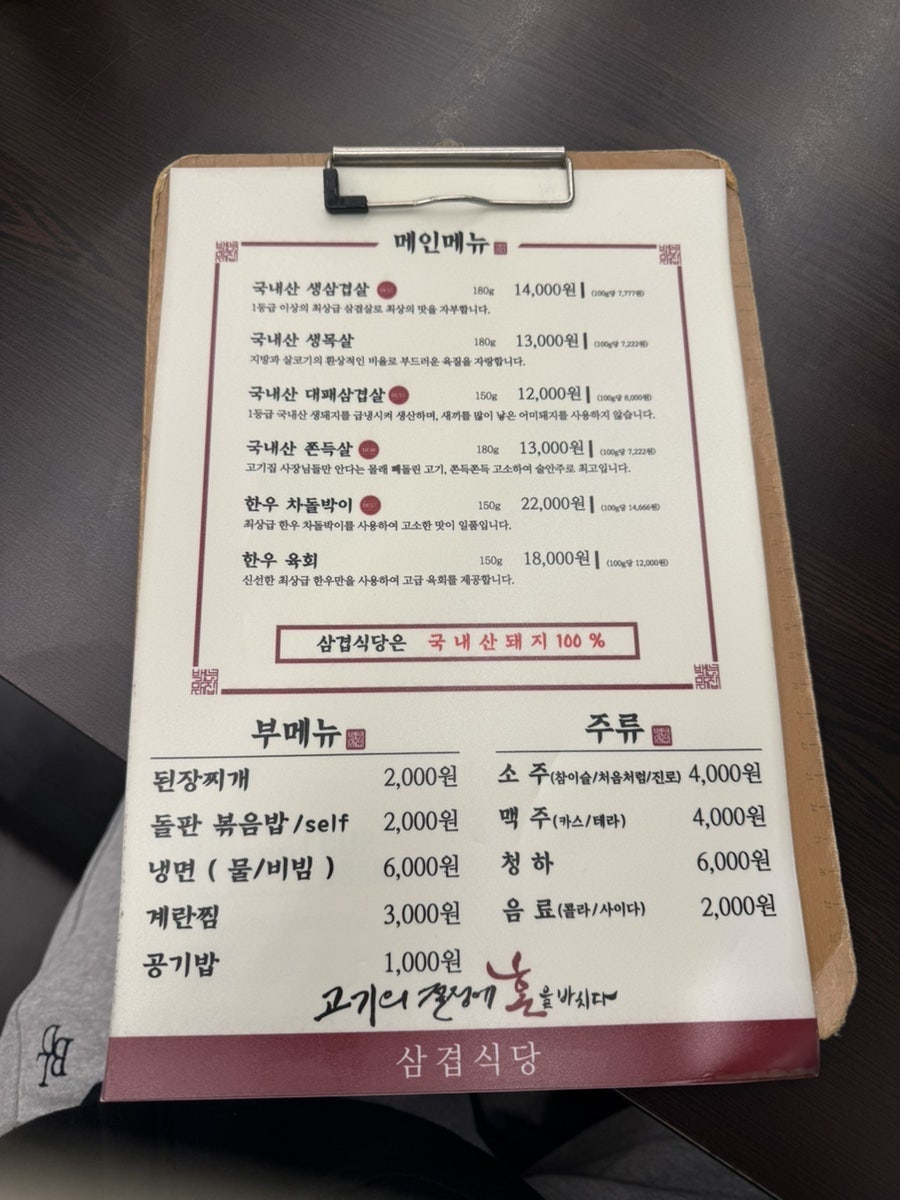 메인메뉴
국내산 생삼겹살 BEST 180g 14,000원 (100g당 7,777원)
1등급 이상의 최상급 삼겹살로 최상의 맛을 자부합니다.
국내산 생목살 180g 13,000원 (100g당 7,222원)
지방과 살코기의 환상적인 비율로 부드러운 육질을 자랑합니다.
국내산 대패삼겹살 BEST 150g 12,000원 (100g당 8,000원)
1등급 국내산 생돼지를 급냉시켜 생산하며, 새끼를 많이 낳은 어미돼지를 사용하지 않습니다.
국내산 쫀득살 NEW 180g 13,000원 (100g당 7,222원)
고기집 사장님들만 안다는 몰래 빼돌린 고기, 쫀득쫀득 고소하여 술안주로 최고입니다.
한우 차돌박이 BEST 150g 22,000원 (100g당 14,666원)
최상급 한우 차돌박이를 사용하여 고소한 맛이 일품입니다.
한우 육회 150g 18,000원 (100g당 12,000원)
신선한 최상급 한우만을 사용하여 고급 육회를 제공합니다.
삼겹식당은 국내산돼지 100 %
부메뉴
된장찌개 2,000원
돌판 볶음밥/self 2,000원
냉면 ( 물/비빔 ) 6,000원
계란찜 3,000원
공기밥 1,000원
주류
소 주(참이슬/처음처럼/진로) 4,000원
맥 주(카스/테라) 4,000원
청 하 6,000원
음 료(콜라/사이다) 2,000원
고기의 열정에 혼을 바치다
삼겹식당